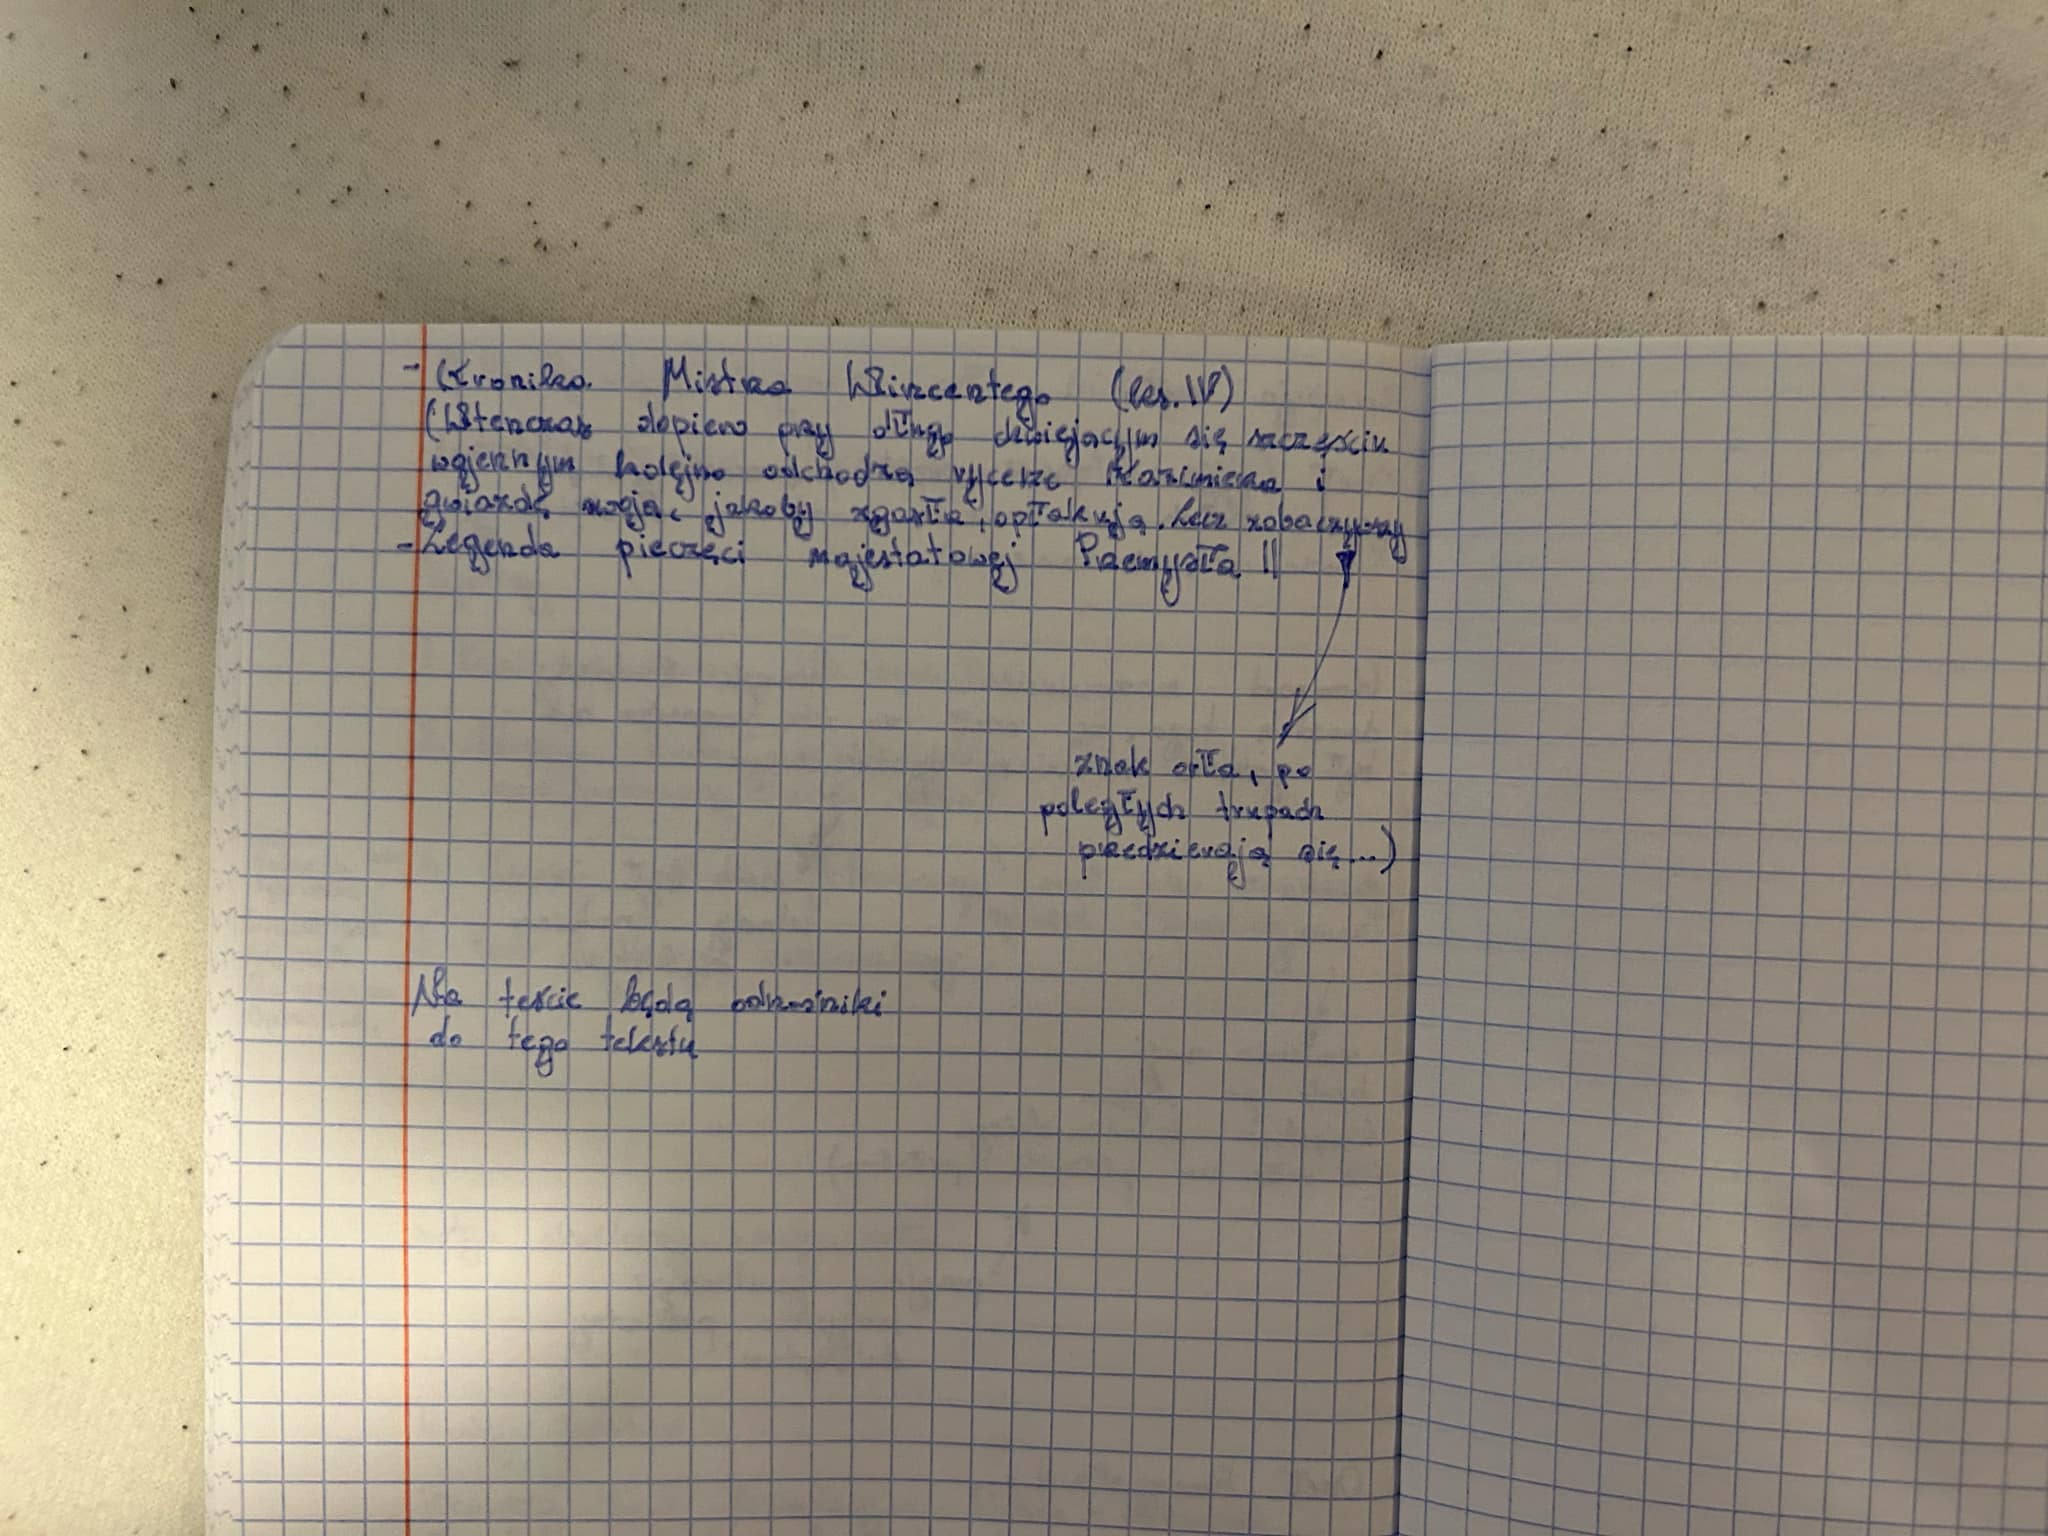 - Kronika Mistrza Wincentego (ks. IV)
(Wtenczas dopiero przy długo chwiejącym się szczęściu
wojennym kolejno odchodzą rycerze Kazimierza i
gwiazdę swoją, jakoby zgasła, opłakują. Lecz zobaczywszy
- Legenda pieczęci majestatowej Przemysła II
znak orła, po
poległych trupach
przedzierają się...)
Na teście będą odnośniki
do tego tekstu